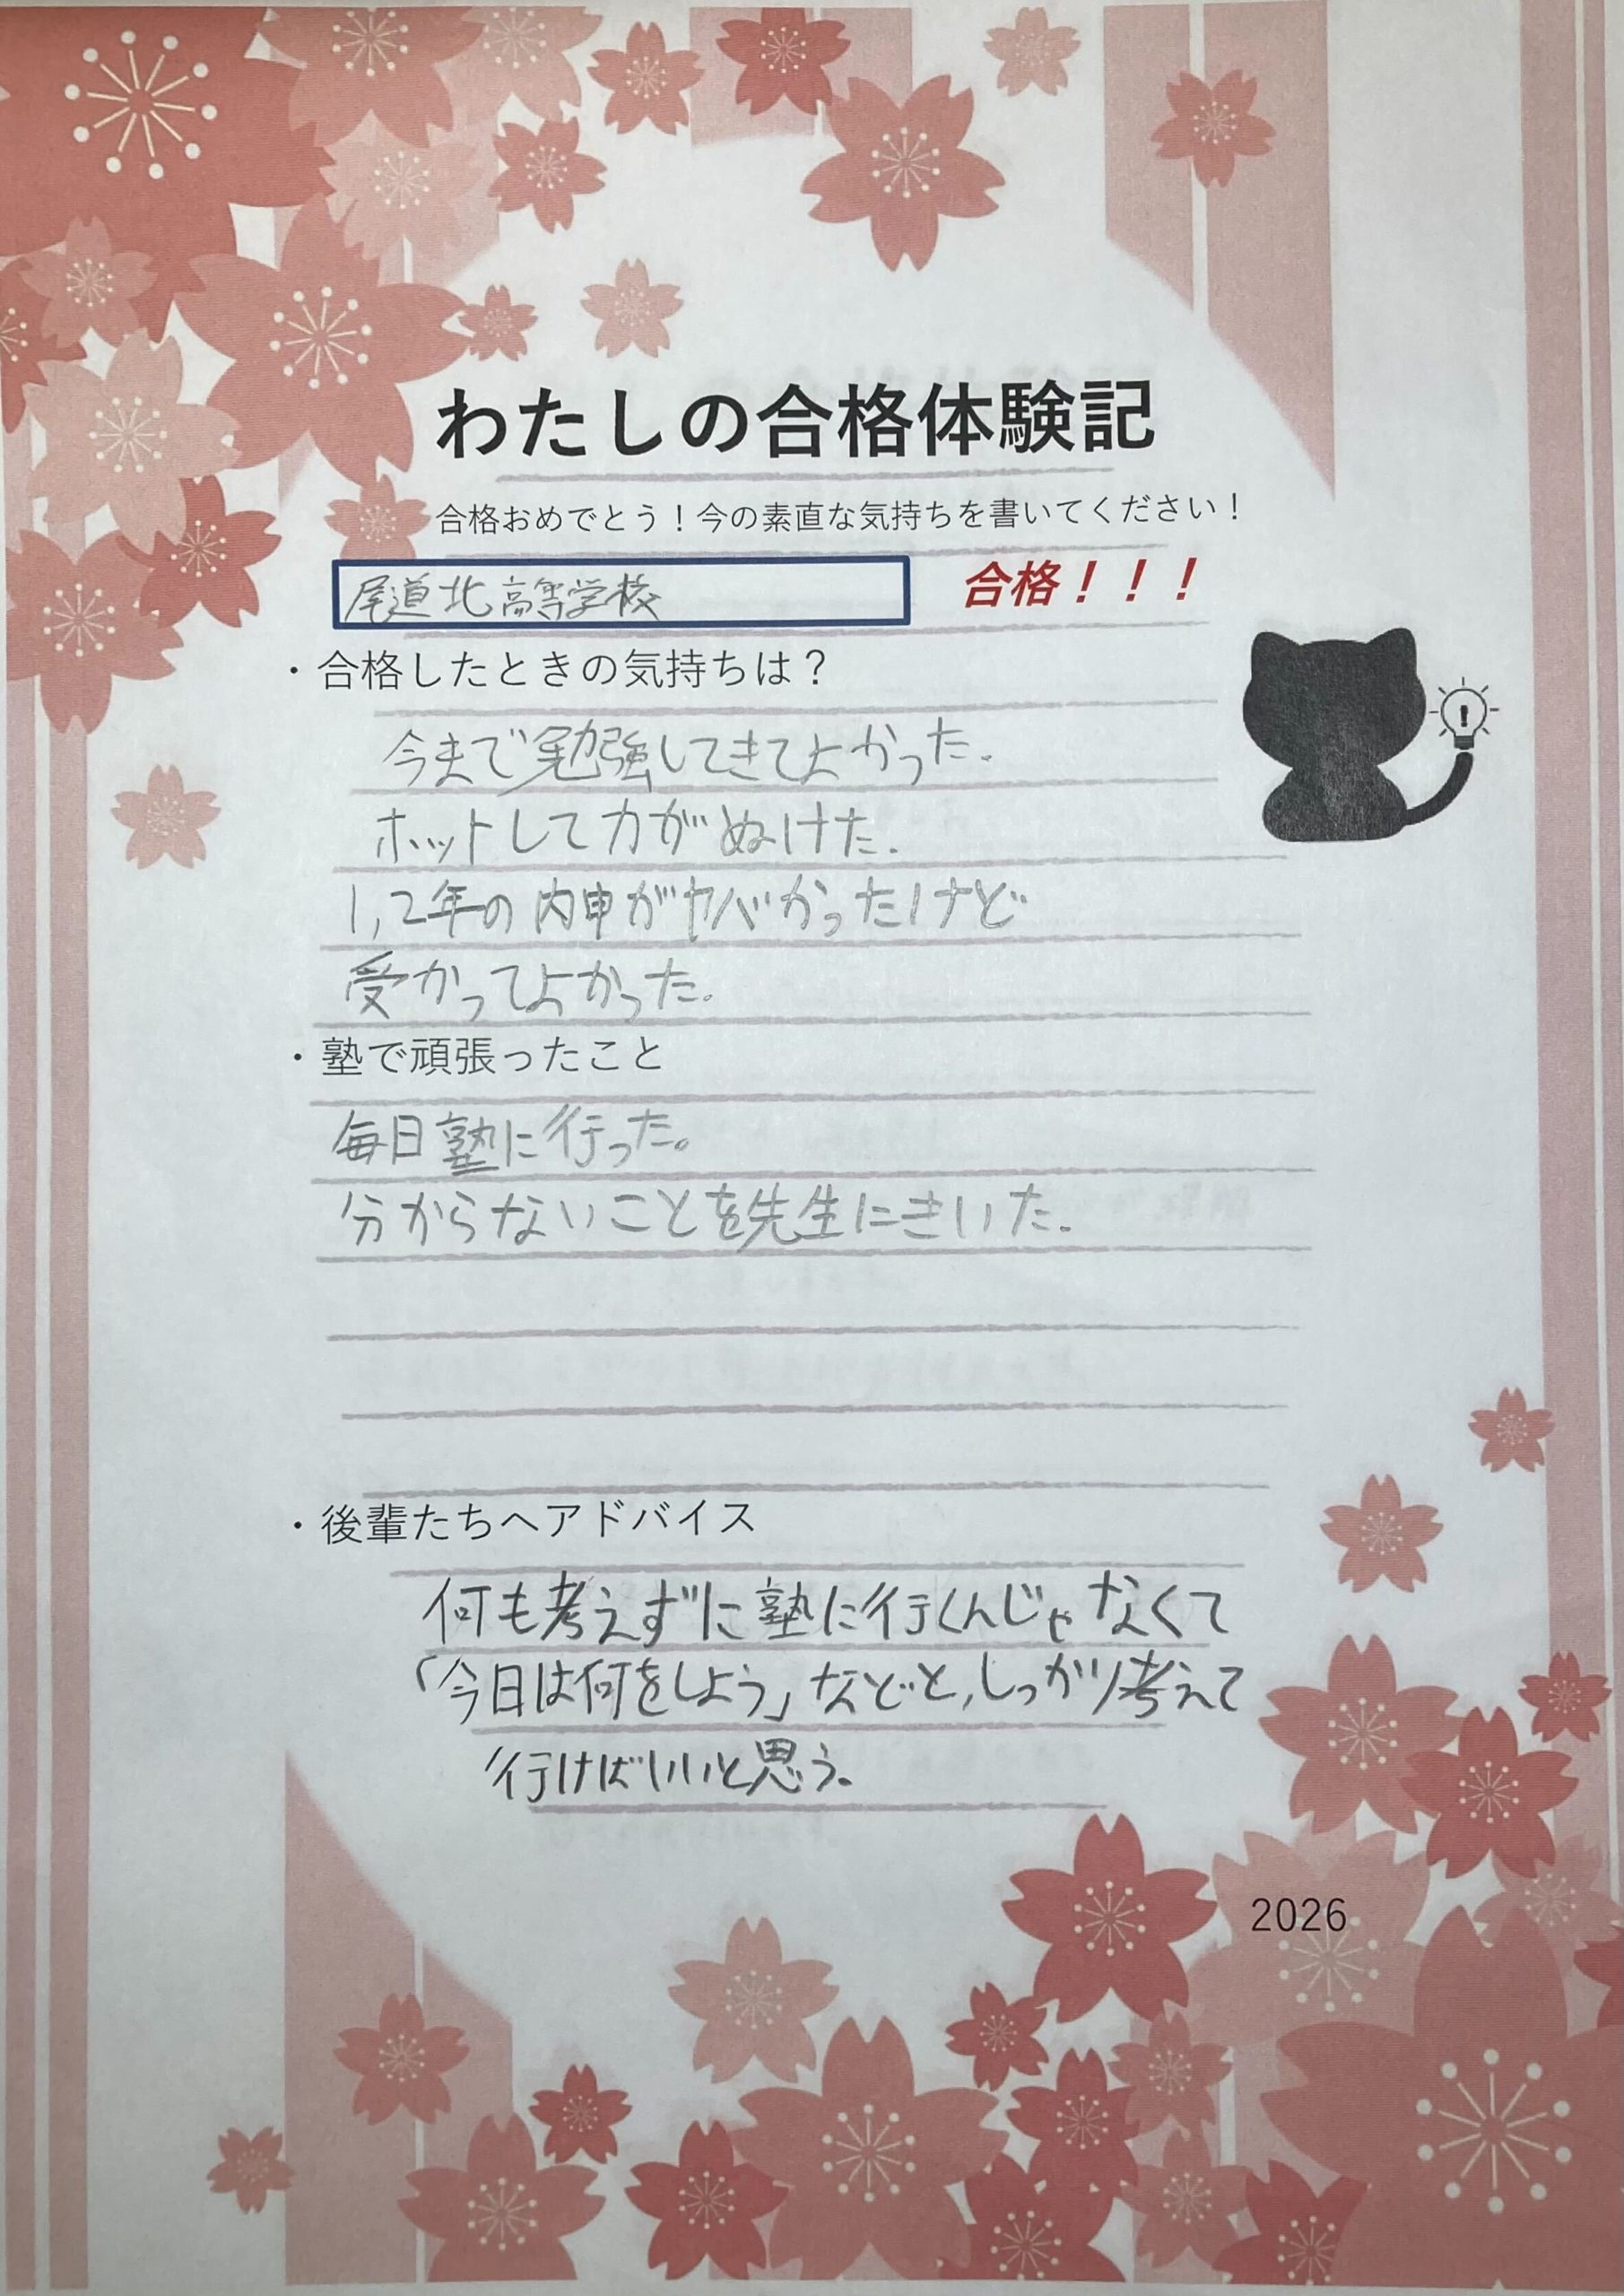 わたしの合格体験記
合格おめでとう！今の素直な気持ちを書いてください！
尾道北高等学校 合格！！！
・合格したときの気持ちは？
今まで勉強してきてよかった。
ホットして力がぬけた。
1,2年の内申がヤバかったけど
受かってよかった。
・塾で頑張ったこと
毎日塾に行った。
分からないことを先生にきいた。
・後輩たちへアドバイス
何も考えずに塾に行くんじゃなくて
「今日は何をしよう」などと,しっかり考えて
行けばいいと思う。
2026